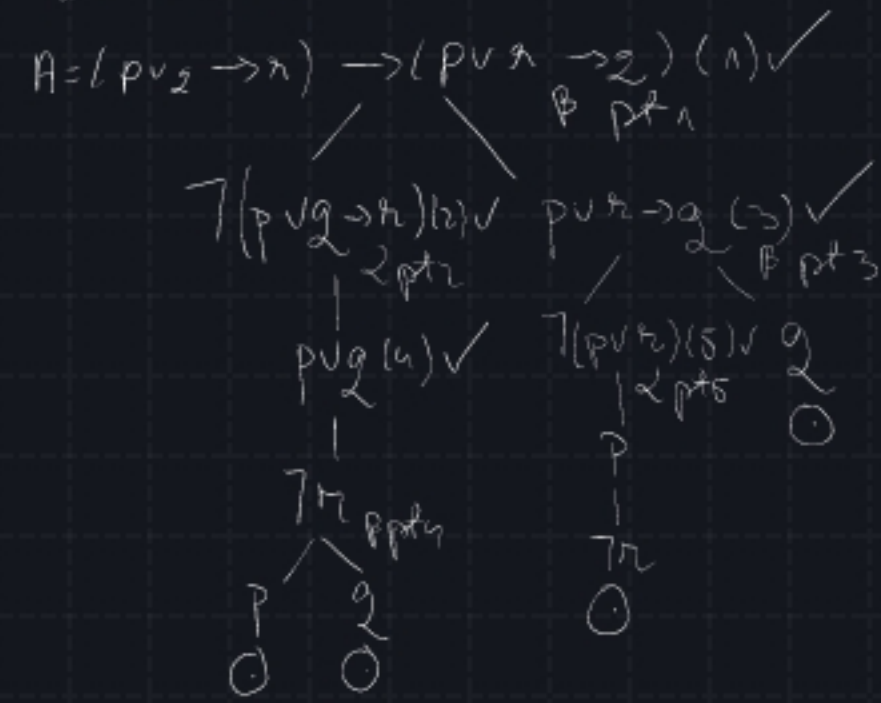 A=(p∨q→r)→(p∨r→q)(1)✓
β pt 1
¬(p∨q→r)(2)✓ p∨r→q(3)✓
α pt 2 β pt 3
p∨q(4)✓ ¬(p∨r)(5)✓ q
α pt 5
p
¬r β pt 4
¬r
p q